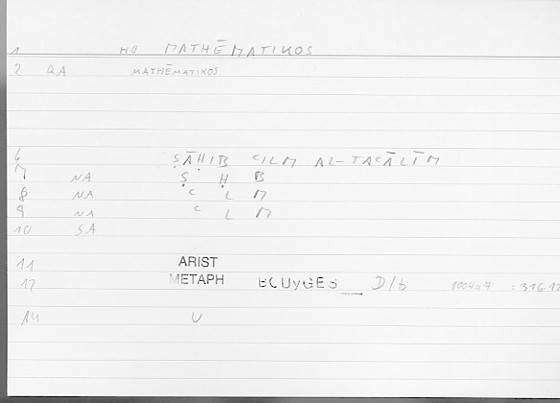 1 HO MATHĒMATIKOS
2 QA MATHĒMATIKOS
6 ṢĀḤIB CILM AL-TACĀLĪM
7 NA Ṣ Ḥ B
8 NA C L M
9 NA C L M
10 SA
11 ARIST
12 METAPH BOUYGES D/b 1004a7 :316.12
14 U